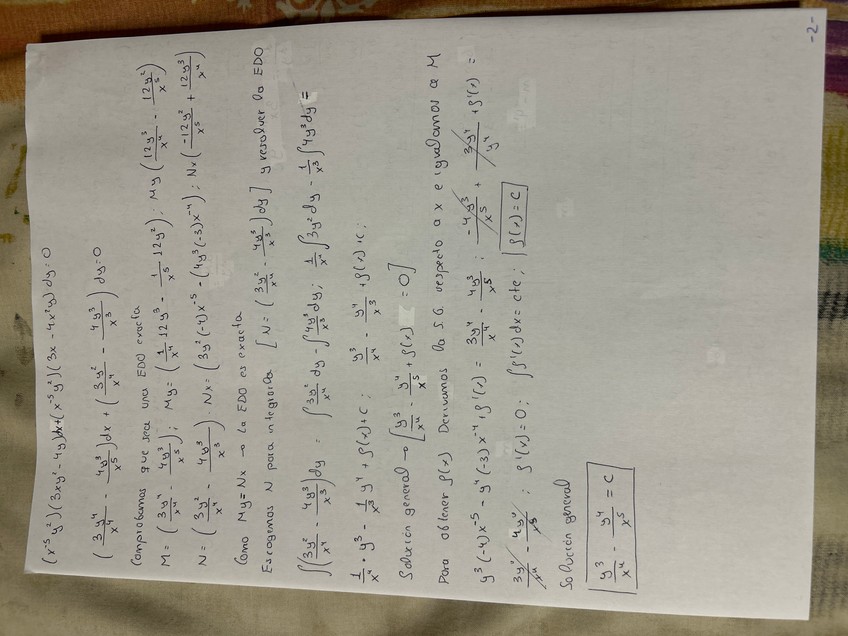 (x⁻⁵y²)(3xy²-4y)dx+(x⁻⁵y²)(3x-4x²y)dy=0
(3y⁴/x⁴ - 4y³/x⁵)dx + (3y²/x⁴ - 4y³/x³)dy=0
Comprobamos que sea una EDO exacta
M=(3y⁴/x⁴ - 4y³/x⁵); My=(1/x⁴ 12y³ - 1/x⁵ 12y²); My(12y³/x⁴ - 12y²/x⁵)
N=(3y²/x⁴ - 4y³/x³). Nx=(3y²(-4)x⁻⁵-(4y³(-3)x⁻⁴); Nx(-12y²/x⁵ + 12y³/x⁴)
Como My=Nx → la EDO es exacta
Escogemos N para integrarla [N=(3y²/x⁴ - 4y³/x³)dy] y resolver la EDO
∫(3y²/x⁴ - 4y³/x³)dy = ∫3y²/x⁴ dy - ∫4y³/x³ dy; 1/x⁴ ∫3y²dy - 1/x³ ∫4y³dy =
1/x⁴ · y³ - 1/x³ y⁴ + ρ(x)+C; y³/x⁴ - y⁴/x³ + ρ(x)+C;
Solución general → [y³/x⁴ - y⁴/x⁵ + ρ(x) = 0]
Para obtener ρ(x) Derivamos la S.G. respecto a x e igualamos a M
y³(-4)x⁻⁵-y⁴(-3)x⁻⁴+ρ'(x) = 3y⁴/x⁴ - 4y³/x⁵; -4y³/x⁵ + 3y⁴/y⁴ + ρ'(x) =
3y⁴/x⁴ - 4y⁴/x⁵; ρ'(x)=0; ∫ρ'(x)dx=cte; ρ(x)=C
Solución general
y³/x⁴ - y⁴/x⁵ = C
-2-